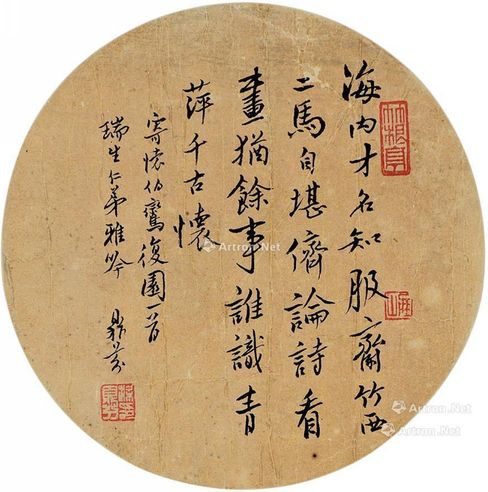 海内才名知服齋竹西
二馬自堪儕論詩看
畫猶餘事誰識青
萍千古懷
寄懷伯鸞復園一首
瑞生仁弟雅吟 鼎芬
Artron.Net
Artron.Net
Artron.Net